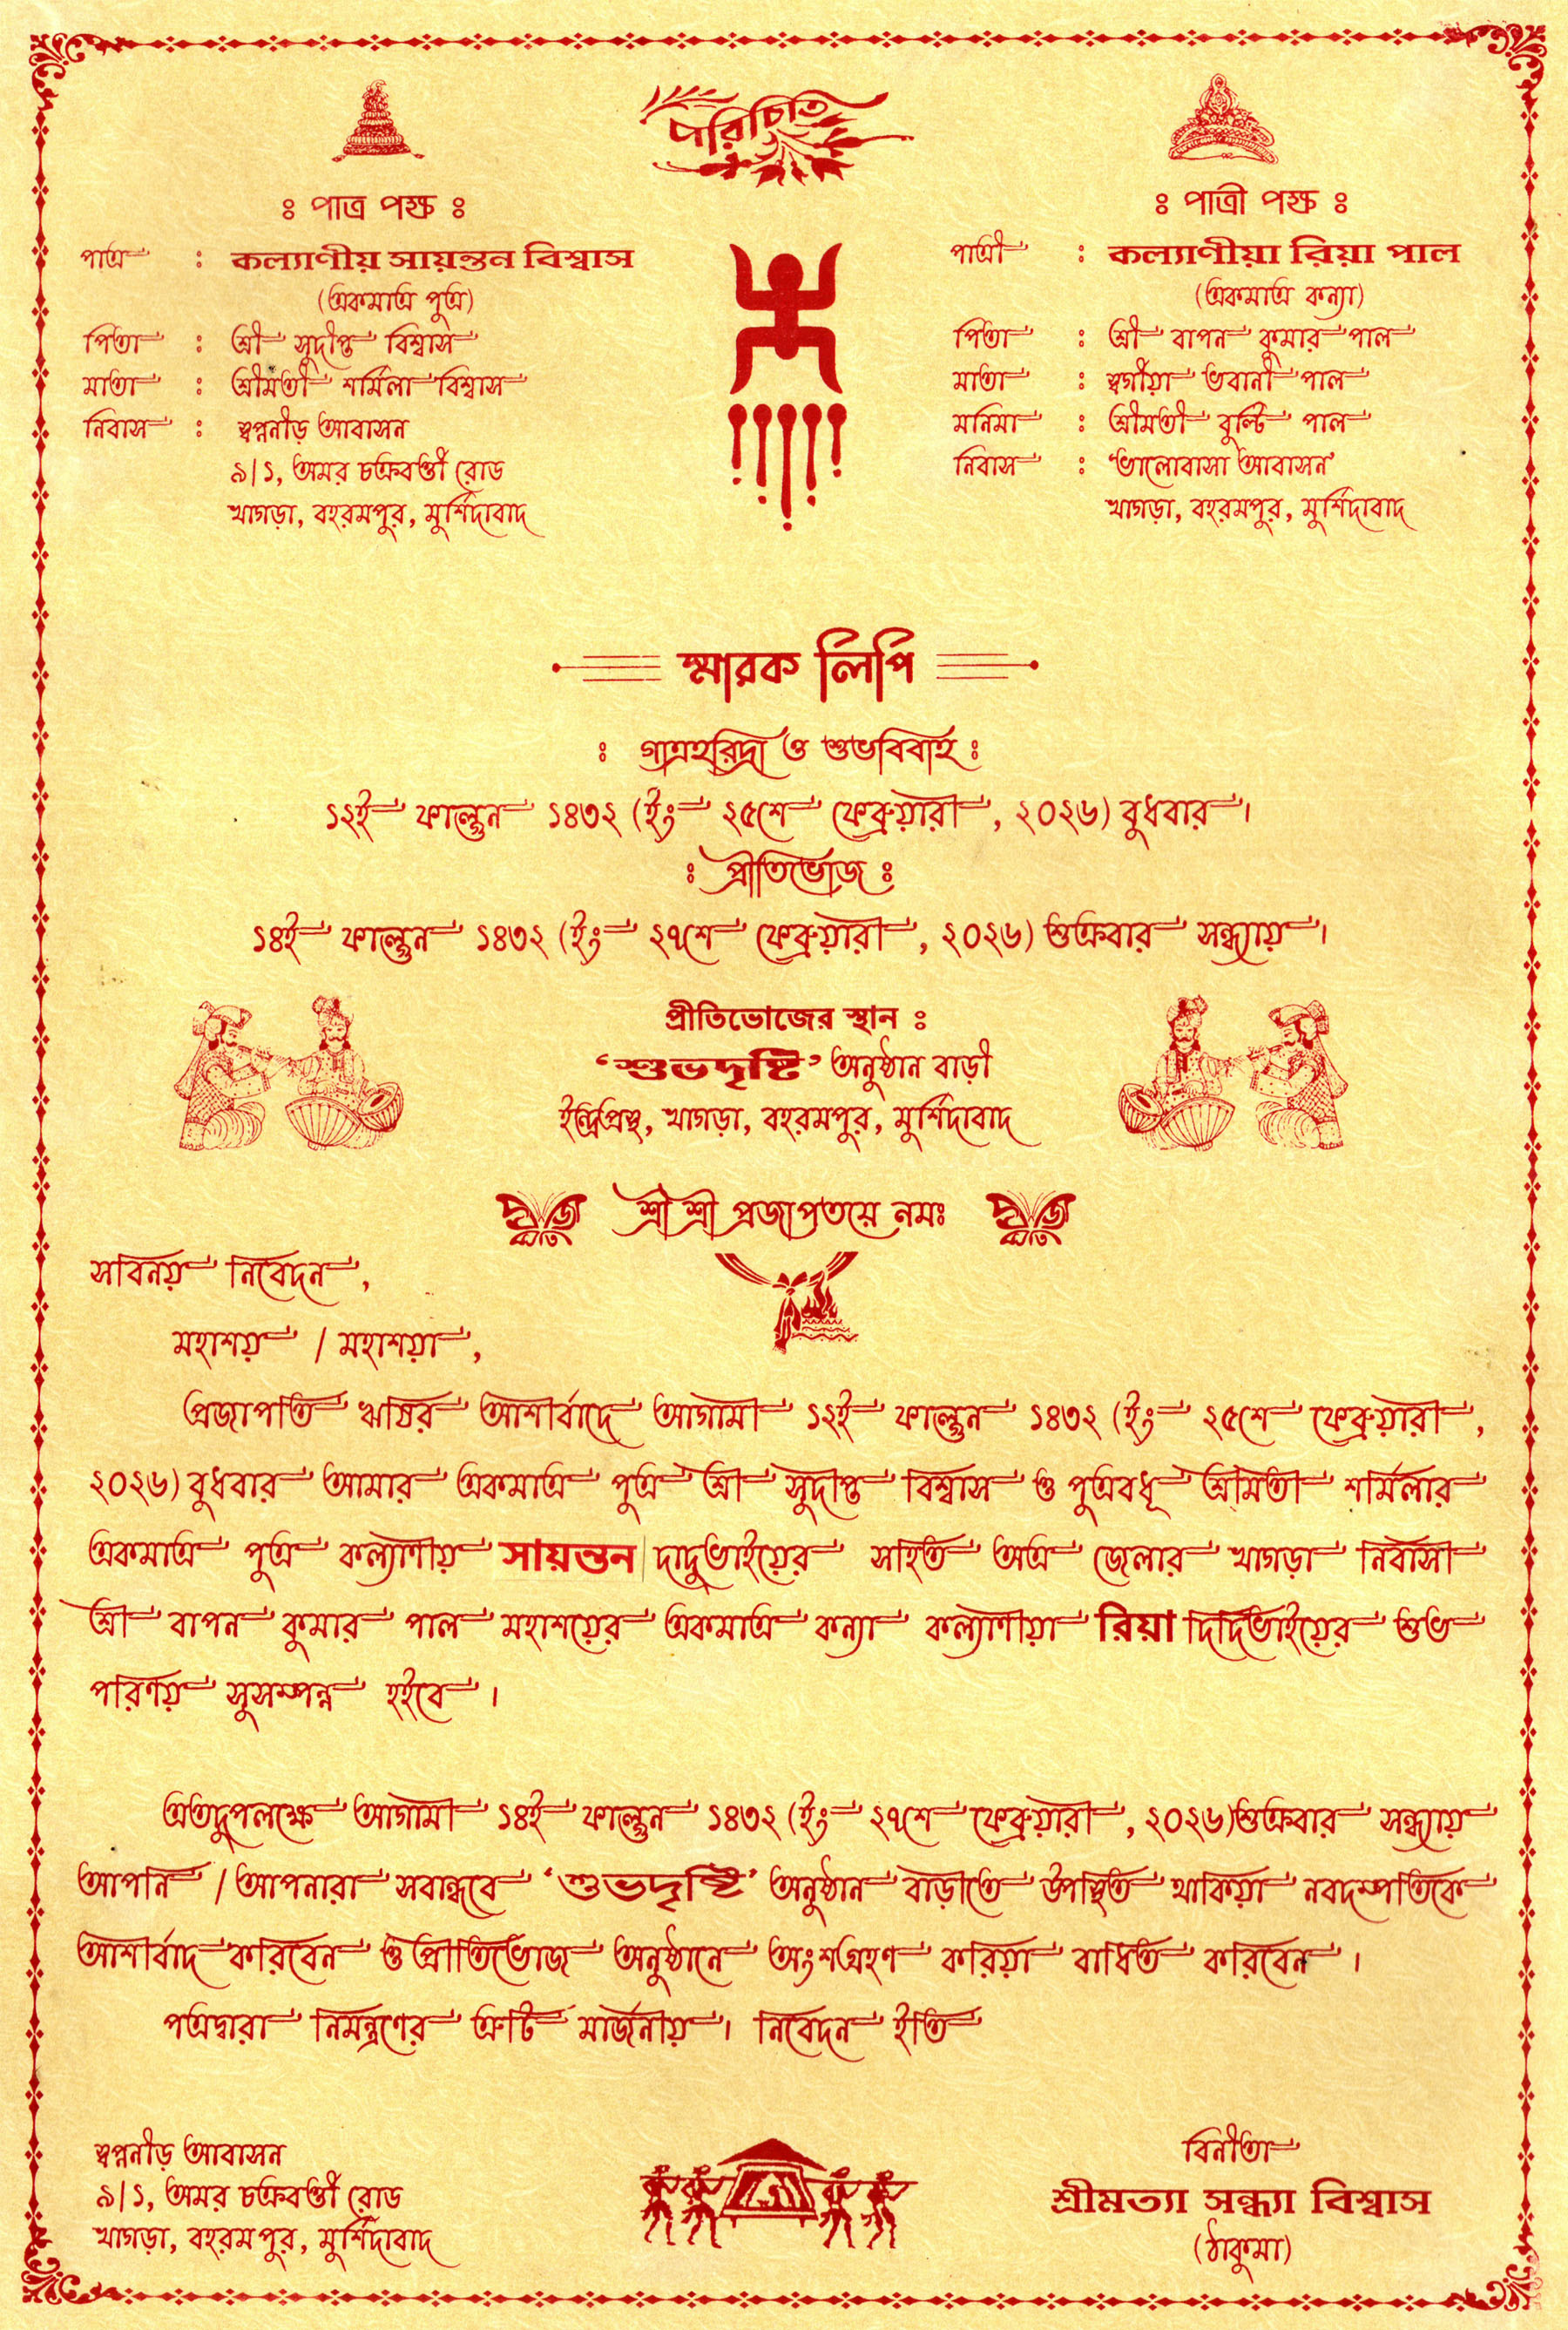 পরিচিতি
ঃ পাত্র পক্ষ ঃ
পাত্র : কল্যাণীয় সায়ন্তন বিশ্বাস
(একমাত্র পুত্র)
পিতা : শ্রী সুদীপ্ত বিশ্বাস
মাতা : শ্রীমতী শর্মিলা বিশ্বাস
নিবাস : স্বপ্ননীড় আবাসন
৯/১, অমর চক্রবর্ত্তী রোড
খাগড়া, বহরমপুর, মুর্শিদাবাদ
ঃ পাত্রী পক্ষ ঃ
পাত্রী : কল্যাণীয়া রিয়া পাল
(একমাত্র কন্যা)
পিতা : শ্রী বাপন কুমার পাল
মাতা : স্বর্গীয়া ভবানী পাল
মনিমা : শ্রীমতী বুল্টি পাল
নিবাস : ‘ভালোবাসা আবাসন’
খাগড়া, বহরমপুর, মুর্শিদাবাদ
স্মারক লিপি
ঃ গাত্রহরিদ্রা ও শুভবিবাহ ঃ
১২ই ফাল্গুন ১৪৩২ (ইং ২৫শে ফেব্রুয়ারী, ২০২৬) বুধবার।
ঃ প্রীতিভোজ ঃ
১৪ই ফাল্গুন ১৪৩২ (ইং ২৭শে ফেব্রুয়ারী, ২০২৬) শুক্রবার সন্ধ্যায়।
প্রীতিভোজের স্থান ঃ
‘শুভদৃষ্টি’ অনুষ্ঠান বাড়ী
ইন্দ্রপ্রস্থ, খাগড়া, বহরমপুর, মুর্শিদাবাদ
শ্রী শ্রী প্রজাপতয়ে নমঃ
সবিনয় নিবেদন,
মহাশয় / মহাশয়া,
প্রজাপতি ঋষির আশীর্বাদে আগামী ১২ই ফাল্গুন ১৪৩২ (ইং ২৫শে ফেব্রুয়ারী,
২০২৬) বুধবার আমার একমাত্র পুত্র শ্রী সুদীপ্ত বিশ্বাস ও পুত্রবধূ শ্রীমতী শর্মিলার
একমাত্র পুত্র কল্যাণীয় সায়ন্তন দাদুভাইয়ের সহিত অত্র জেলার খাগড়া নিবাসী
শ্রী বাপন কুমার পাল মহাশয়ের একমাত্র কন্যা কল্যাণীয়া রিয়া দিদিভাইয়ের শুভ
পরিণয় সুসম্পন্ন হইবে।
এতদুপলক্ষে আগামী ১৪ই ফাল্গুন ১৪৩২ (ইং ২৭শে ফেব্রুয়ারী, ২০২৬) শুক্রবার সন্ধ্যায়
আপনি / আপনারা সবান্ধবে ‘শুভদৃষ্টি’ অনুষ্ঠান বাড়ীতে উপস্থিত থাকিয়া নবদম্পতিকে
আশীর্বাদ করিবেন ও প্রীতিভোজ অনুষ্ঠানে অংশগ্রহণ করিয়া বাধিত করিবেন।
পত্রদ্বারা নিমন্ত্রণের ত্রুটি মার্জনীয়। নিবেদন ইতি
স্বপ্ননীড় আবাসন
৯/১, অমর চক্রবর্ত্তী রোড
খাগড়া, বহরমপুর, মুর্শিদাবাদ
বিনীতা
শ্রীমত্যা সন্ধ্যা বিশ্বাস
(ঠাকুমা)